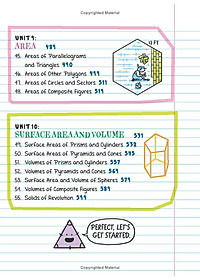 UNIT 9:
AREA 489
45. Areas of Parallelograms
and Triangles 490
46. Areas of Other Polygons 499
47. Areas of Circles and Sectors 511
48. Areas of Composite Figures 519
12 FT
UNIT 10:
SURFACE AREA AND VOLUME 531
49. Surface Areas of Prisms and Cylinders 532
50. Surface Areas of Pyramids and Cones 545
51. Volumes of Prisms and Cylinders 553
52. Volumes of Pyramids and Cones 561
53. Surface Area and Volume of Spheres 573
54. Volumes of Composite Figures 584
55. Solids of Revolution 594
PERFECT, LET'S
GET STARTED.
Copyrighted Material